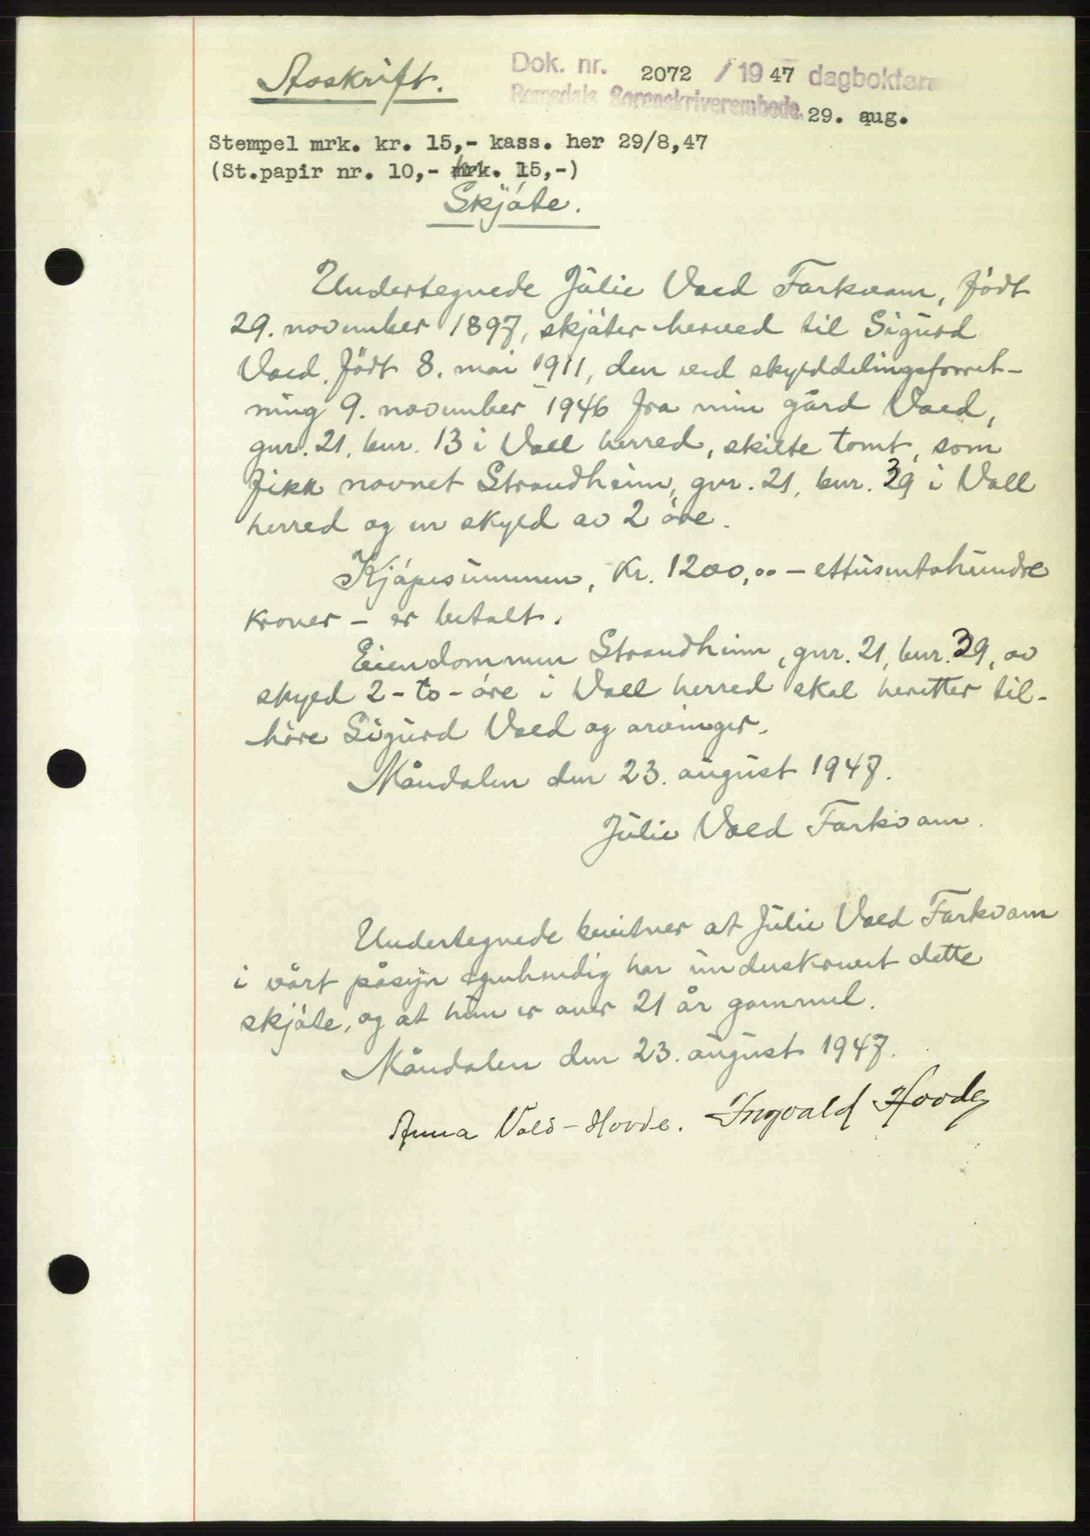 Avskrift.
Dok. nr. 2072 / 1947 dagbokført
Romsdals Sorenskriverembede, 29. aug.
Stempel mrk. kr. 15,- kass. her 29/8,47
(St.papir nr. 10,- mrk. 15,-)
Skjöte.
Undertegnede Julie Vold Farkvam, født
29. november 1897, skjöter herved til Sigurd
Vold, født 8. mai 1911, den ved skylddelingsforret-
ning 9. november 1946 fra min gård Vold,
gnr. 21, bnr. 13 i Voll herred, skilte tomt, som
fikk navnet Strandheim, gnr. 21, bnr. 39 i Voll
herred og en skyld av 2 öre.
Kjöpesummen, kr. 1200,oo - ettusentohundre
kroner - er betalt.
Eiendommen Strandheim, gnr. 21, bnr. 39, av
skyld 2 - to - öre i Voll herred skal heretter til-
höre Sigurd Vold og arvinger.
Måndalen den 23. august 1947.
Julie Vold Farkvam.
Undertegnede bevitner at Julie Vold Farkvam
i vårt påsyn egenhendig har underskrevet dette
skjöte, og at hun er over 21 år gammel.
Måndalen den 23. august 1947.
Anna Vold-Hovde. Ingvald Hovde